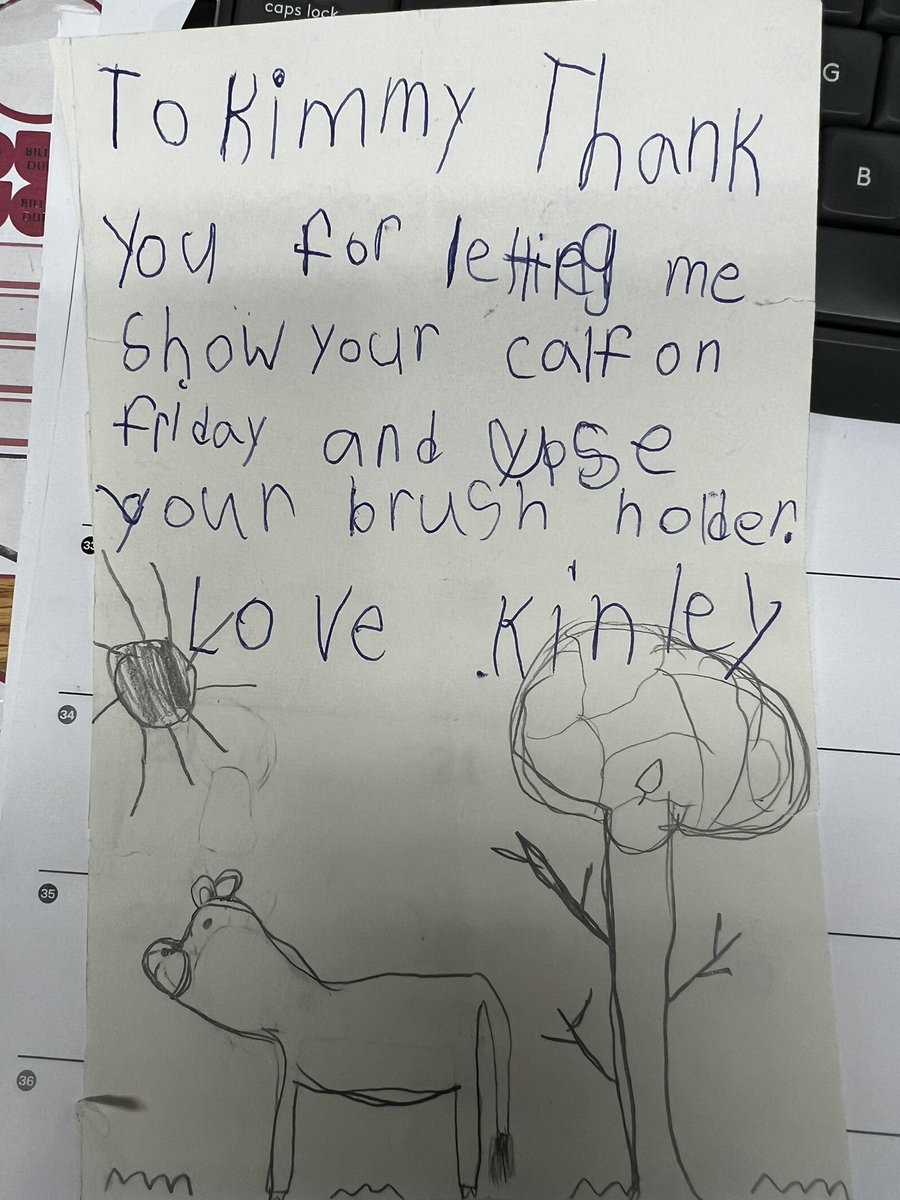 caps lock
G
B
BILL
DU
BILL
DU
To Kimmy Thank
you for letting me
show your calf on
friday and use
your brush holder.
Love Kinley
33
34
35
36